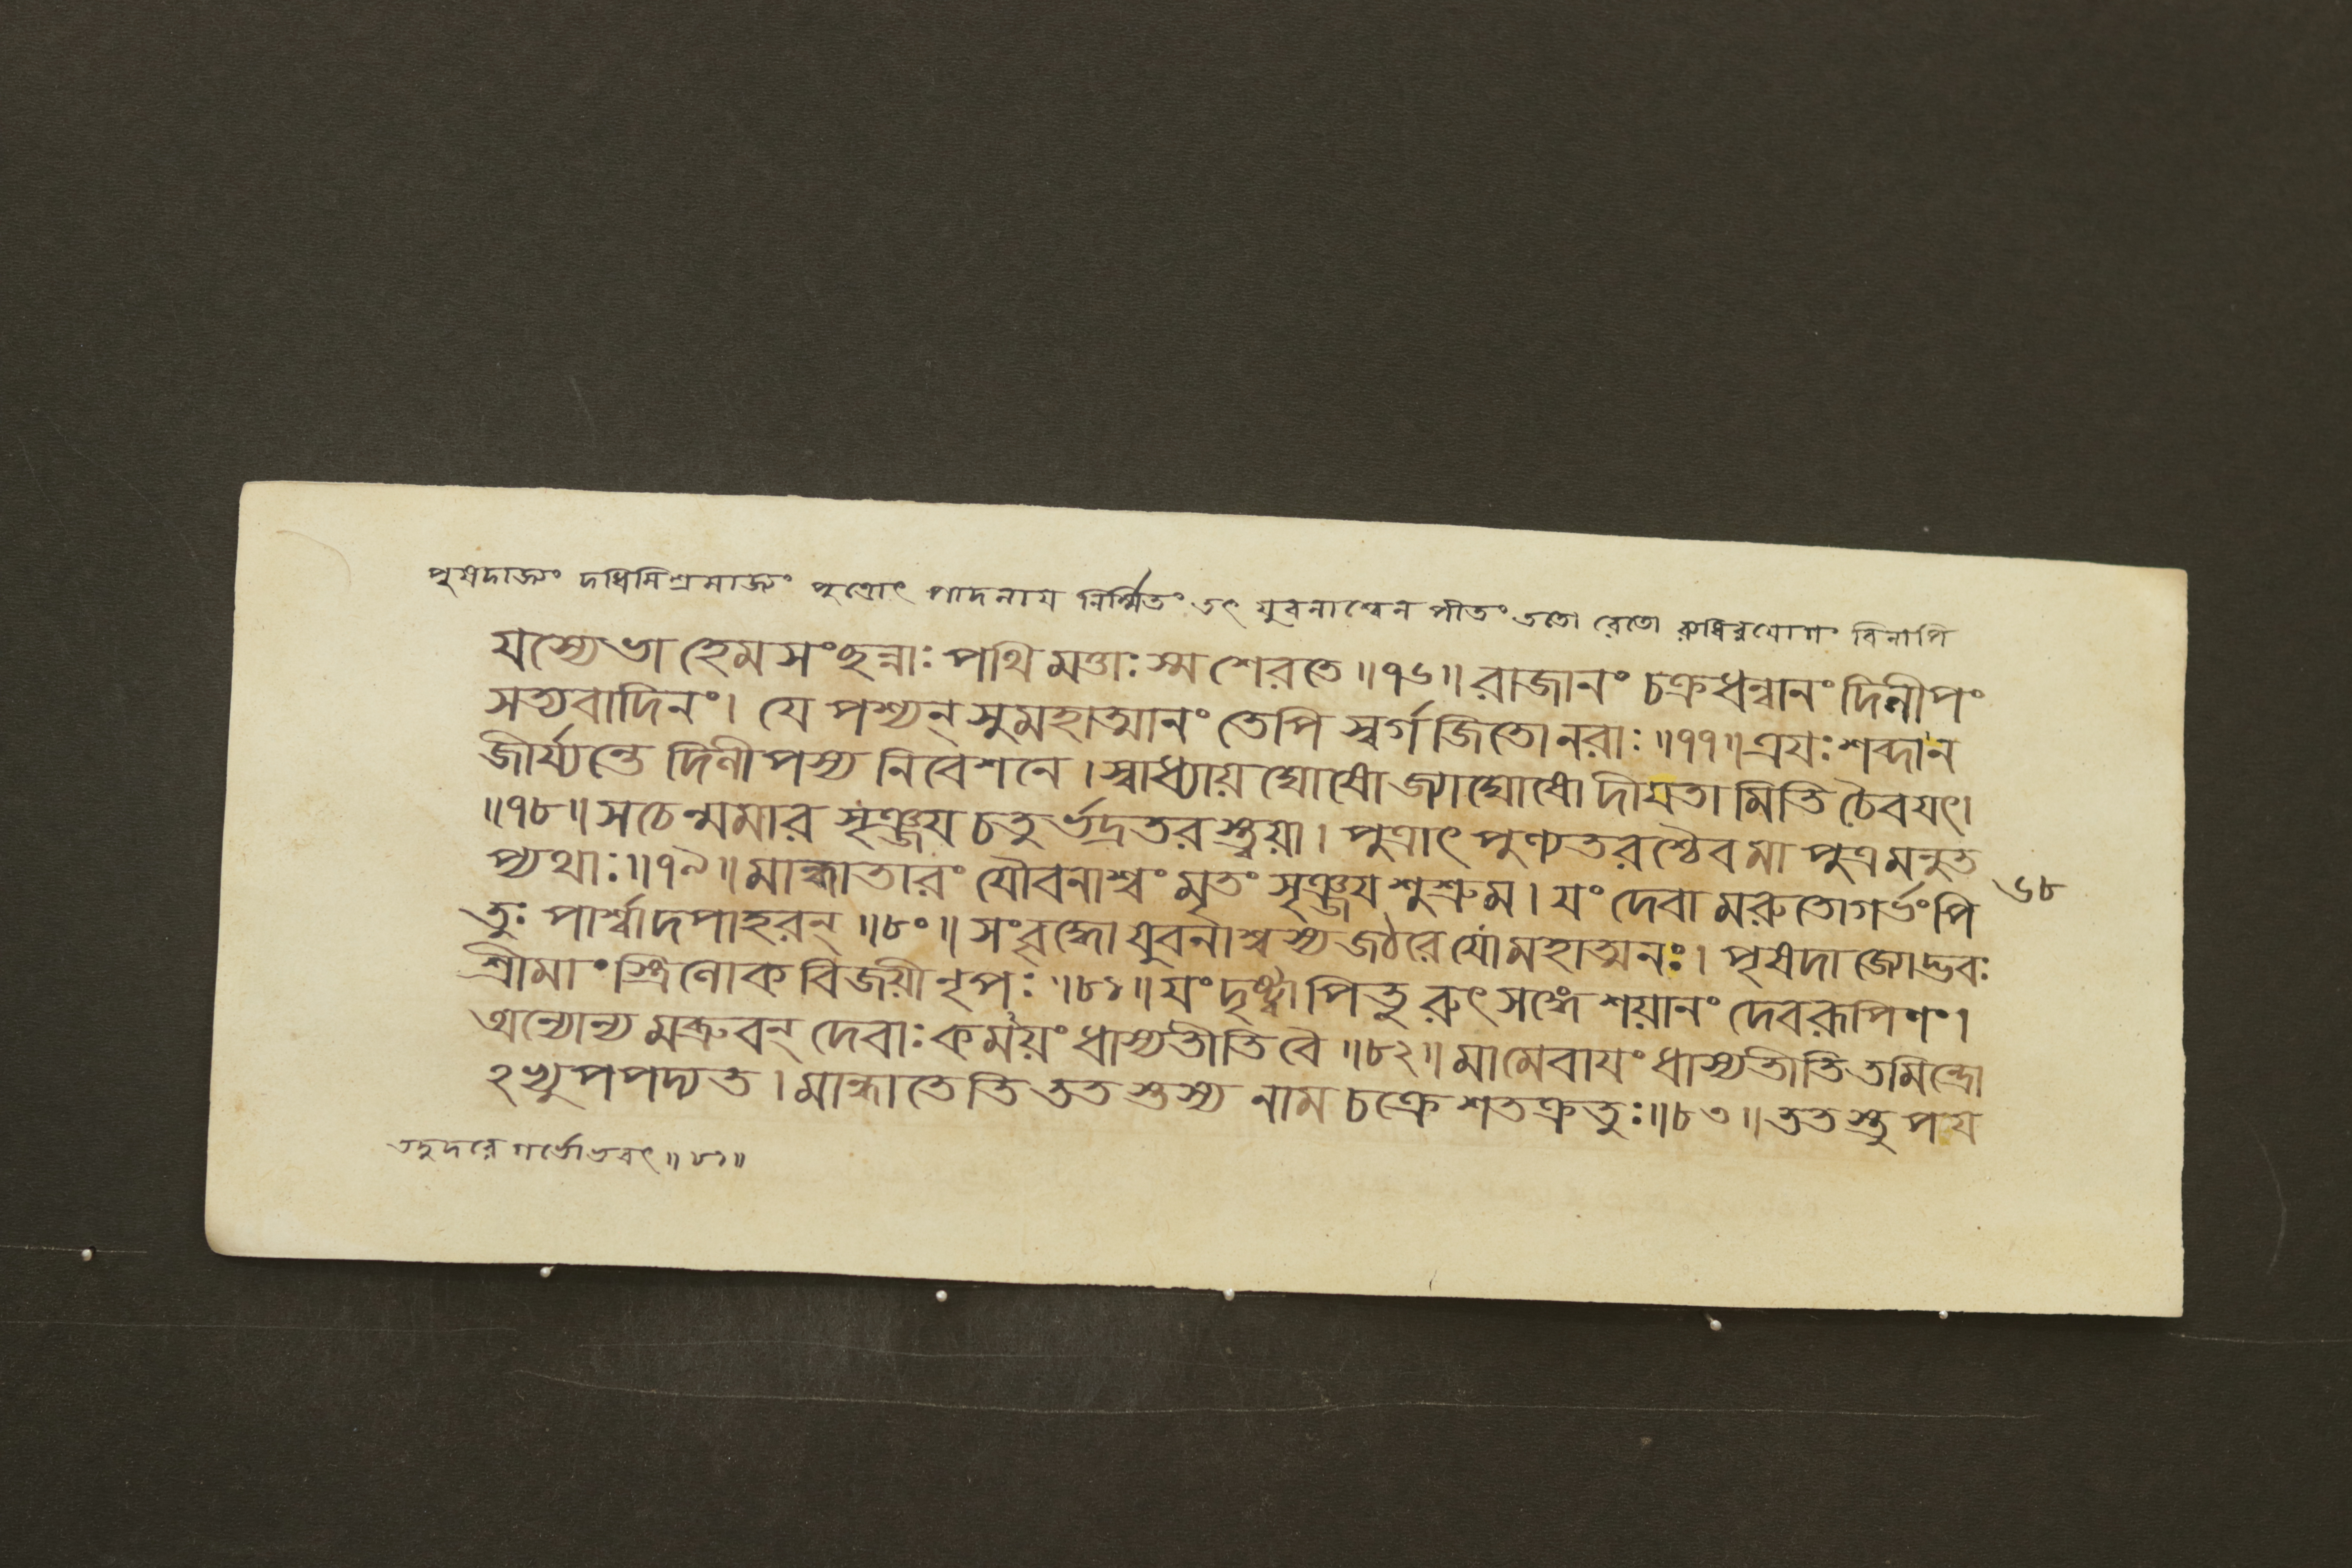 পৃষদাজ্যং দধিমিশ্রমাজ্যং পুত্রোৎ পাদনায নির্ম্মিতং তৎ যুবনাশ্বেন পীতং ততো রেতো রুধিরযোগং বিনাপি
যস্যেভা হেমসংছন্নাঃ পথি মত্তাঃ স্ম শেরতে॥৭৬॥ রাজানং চক্রধন্বানং দিলীপং
সত্যবাদিনং। যে পশ্যন্ সুমহাত্মানং তেপি স্বর্গজিতো নরাঃ॥৭৭॥ ত্রযঃ শব্দা ন
জীর্য্যন্তে দিলীপস্য নিবেশনে। স্বাধ্যায় ঘোষো জ্যাঘোষো দীযতা মিতি চৈব যৎ।
॥৭৮॥ স চেন্মমার সৃঞ্জয চতুর্ভদ্রতরস্ত্বয়া। পুত্রাৎ পুণ্যতরশ্চৈব মা পুত্রমনুত
প্যথাঃ॥৭৯॥ মান্ধাতারং যৌবনাশ্বং মৃতং সৃঞ্জয শুশ্রুম। যং দেবা মরুতো গর্ভং পি ৬৮
তুঃ পার্শ্বাদপাহরন্॥৮০॥ সংবৃদ্ধো যুবনাশ্বস্য জঠরে যো মহাত্মনঃ। পৃষদাজ্যোদ্ভবঃ
শ্রীমাংস্ত্রিলোক বিজয়ী নৃপঃ॥৮১॥ যং দৃষ্ট্বা পিতু রুৎসঙ্গে শয়ানং দেবরূপিণং।
অন্যোন্য মব্রুবন্ দেবাঃ কময়ং ধাস্যতীতি বৈ॥৮২॥ মামেবাযং ধাস্যতীতি তমিন্দ্রো
২ভ্যুপপদ্যত। মান্ধাতেতি ততস্তস্য নাম চক্রে শতক্রতুঃ॥৮৩॥ ততস্তু পয
তদুদরে গর্ভোভবৎ॥৮১॥